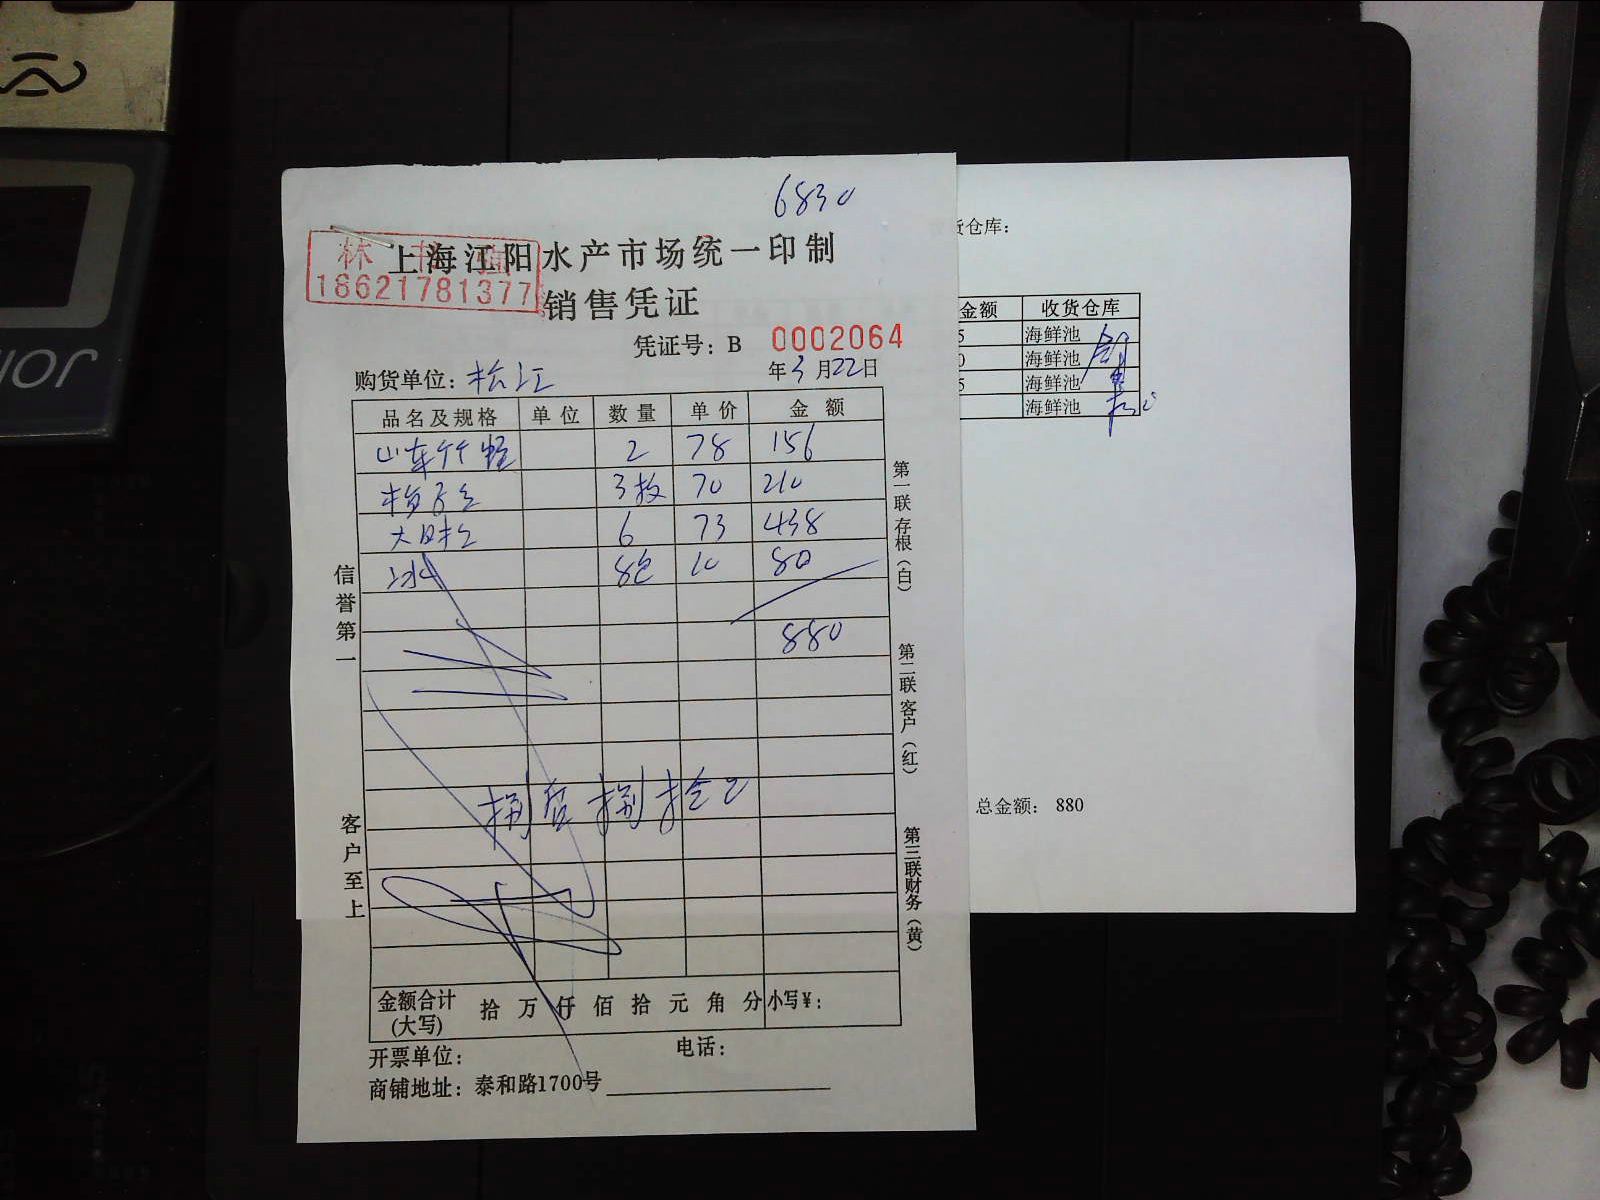 6830
上海江阳水产市场统一印制
林
18621781377
销售凭证
凭证号：B 0002064
购货单位：松江 年3月22日
品名及规格 单位 数量 单价 金额
山东竹蛏 2 78 156
3枚 70 210
大 6 73 438
冰 8包 10 80
880
捌佰捌拾元
金额合计(大写) 拾万仟佰拾元角分 小写¥：
开票单位： 电话：
商铺地址：泰和路1700号
信誉第一
客户至上
第一联存根（白）
第二联客户（红）
第三联财务（黄）
货仓库：
金额 收货仓库
5 海鲜池
0 海鲜池
5 海鲜池
海鲜池
总金额： 880
JOI